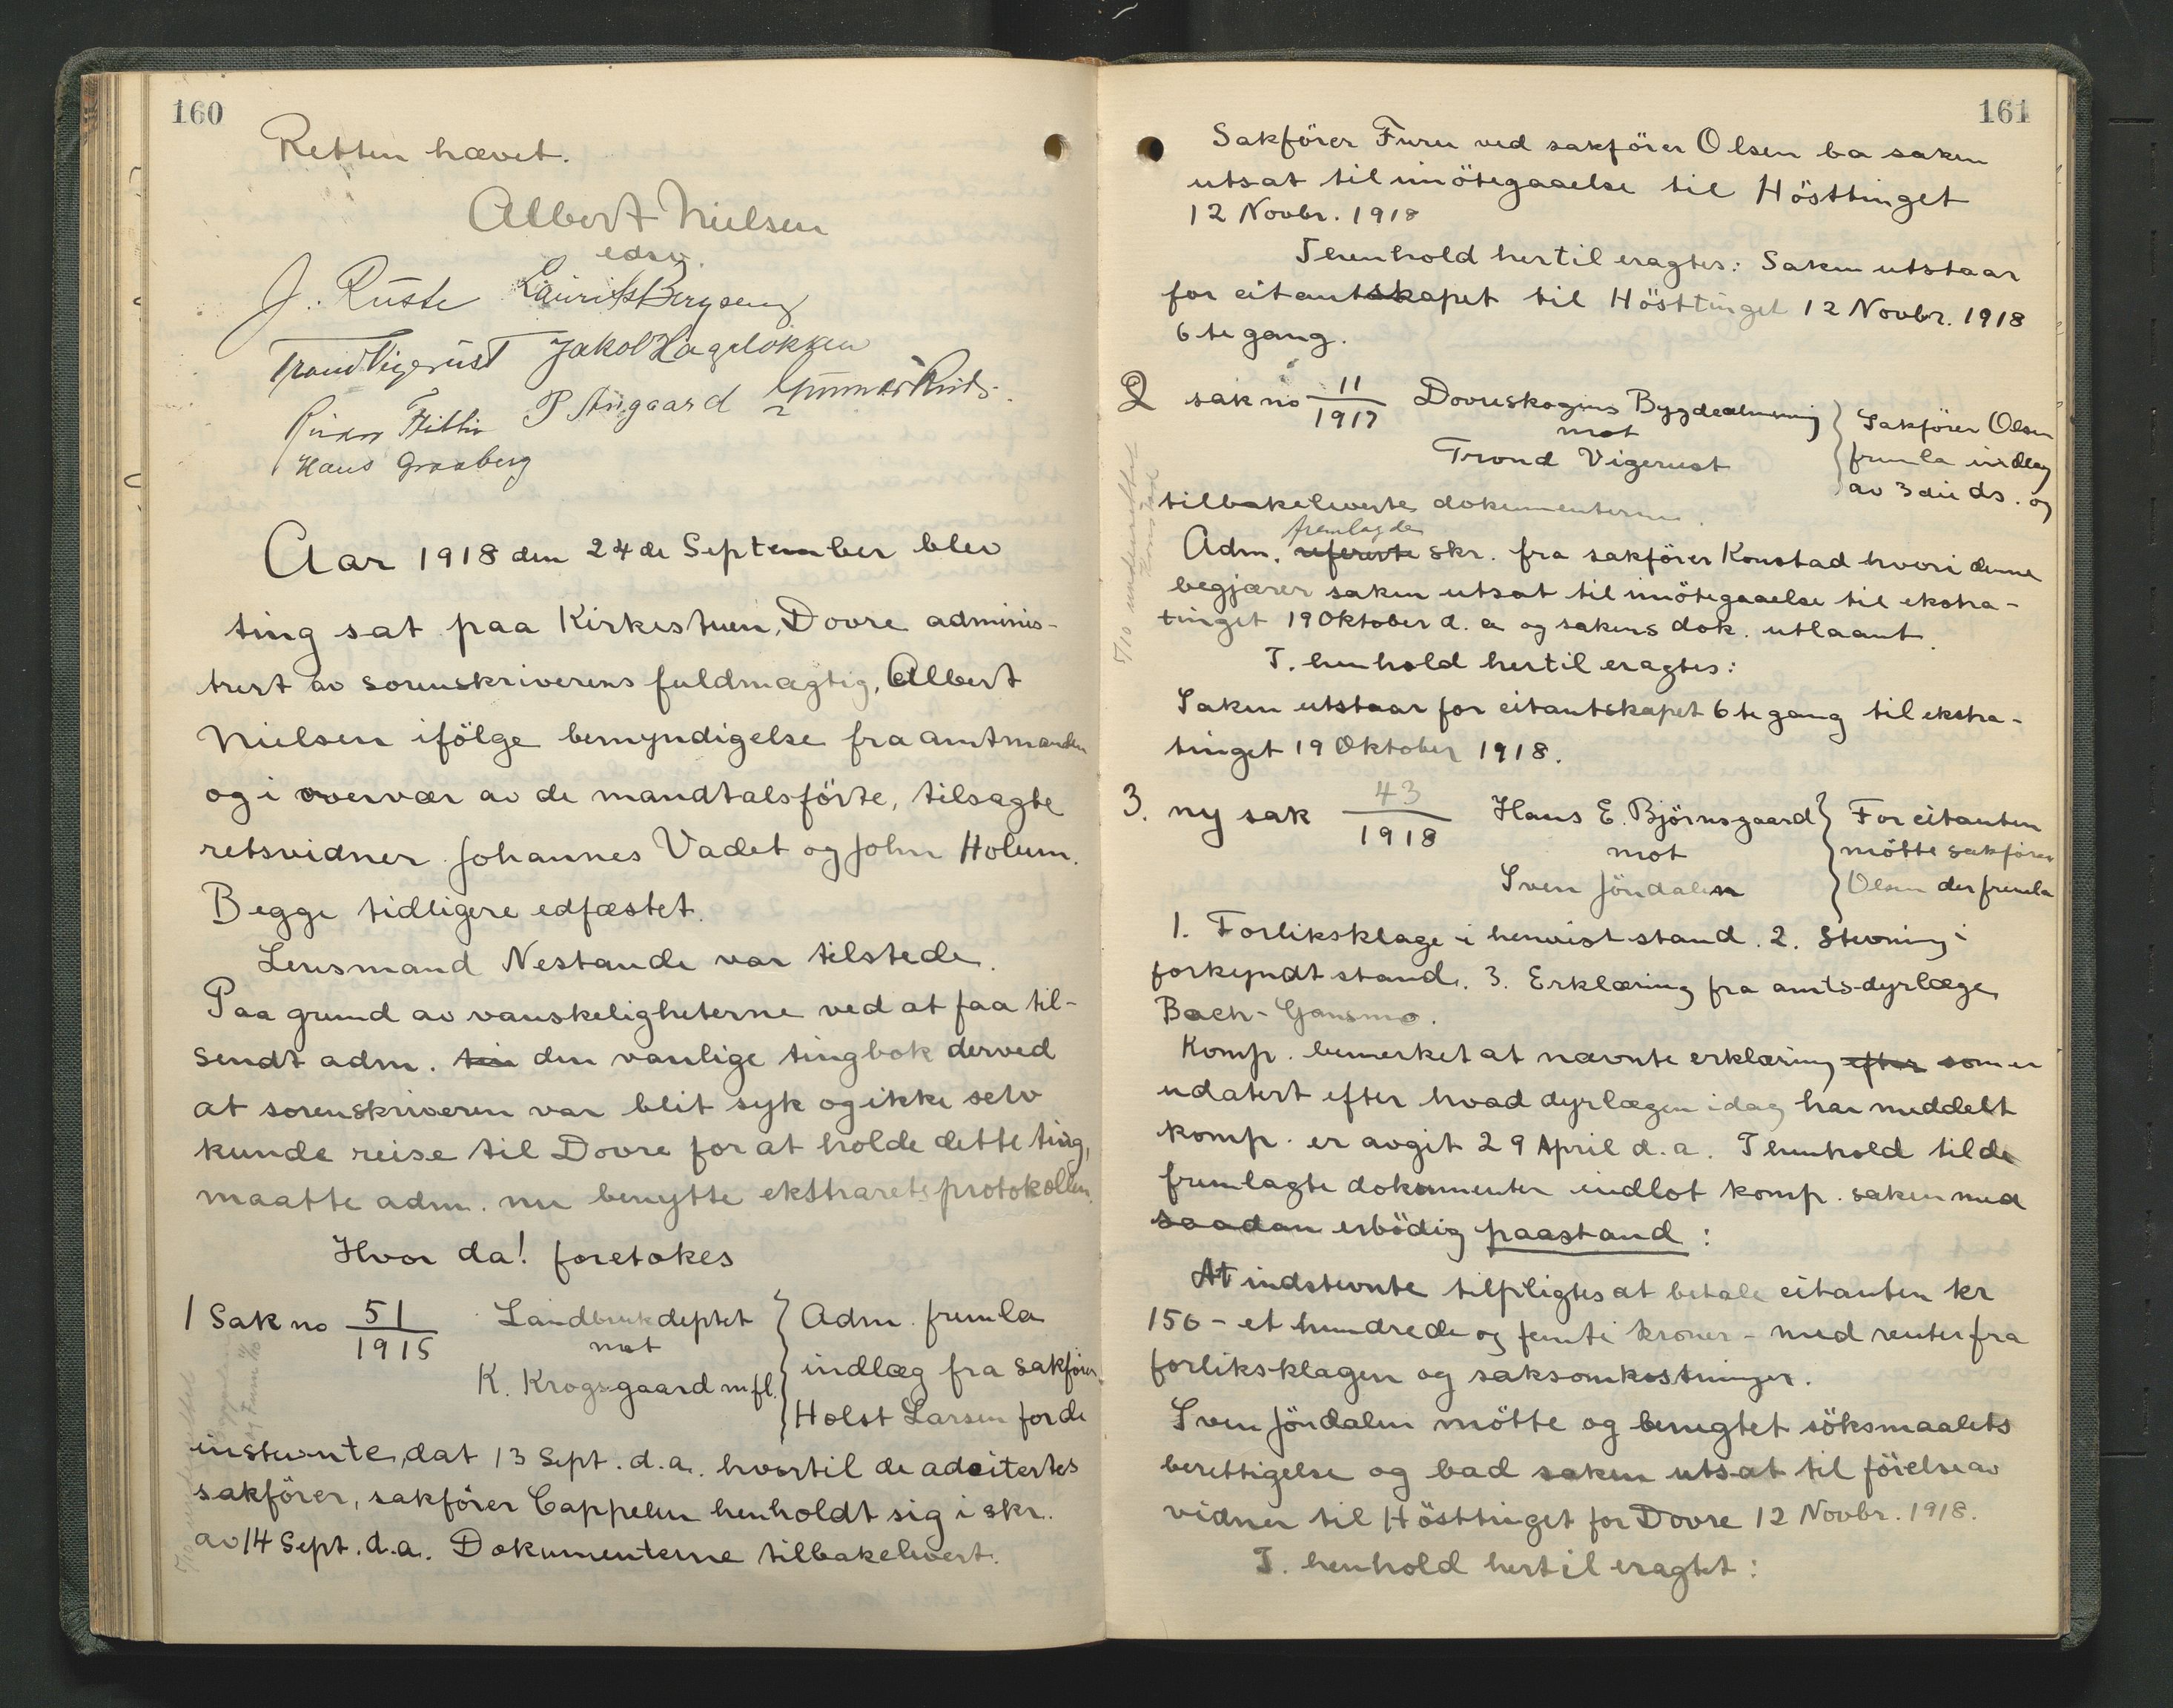 160
Retten hævet.
Albert Nielsen
edsv.
J. Ruste Laurits Bergseng
Trond Vigerust Jakob Hageløkken
P Angaard Gunnar
Hans Graaberg
Aar 1918 den 24de September blev
ting sat paa Kirkestuen, Dovre adminis-
trert av sorenskriverens fuldmægtig, Albert
Nielsen ifölge bemyndigelse fra amtmanden
og i overvær av de mandtalsförte, tilsagte
retsvidner Johannes Vadet og John Holum.
Begge tidligere edfæstet.
Lensmand Nestande var tilstede.
Paa grund av vanskeligheterne ved at faa til-
sendt adm. den vanlige tingbok derved
at sorenskriveren var blit syk og ikke selv
kunde reise til Dovre for at holde dette ting,
maatte adm. nu benytte ekstraretsprotokollen.
Hvor da! foretokes
1 Sak no 51/1915 Landbruksdeptet mot K. Krogsgaard m fl. } Adm. fremla
indlæg fra sakförer
Holst Larsen for de
instevnte, dat 13 Sept. d.a. hvortil de adcitertes
sakförer, sakförer Cappelen henholdt sig i skr.
av 14 Sept. d.a. Dokumenterne tilbakelevert.
161
Sakförer Furu ved sakförer Olsen ba saken
utsat til imötegaaelse til Hösttinget
12 Novbr. 1918
I henhold hertil eragtes: Saken utstaar
for citantskapet til Hösttinget 12 Novbr. 1918
6te gang.
2 sak no 11/1917 Dovreskogens Bygdealmening mot Trond Vigerust } Sakförer Olsen
fremla indlæg
av 3die ds. og
tilbakeleverte dokumenterne.
fremlagde
Adm. refererte skr. fra sakförer Konstad hvori denne
begjærer saken utsat til imötegaaelse til ekstra-
tinget 19 Oktober d. a og sakens dok. utlaant.
I. henhold hertil eragtes:
Saken utstaar for citantskapet 6te gang til ekstra-
tinget 19 Oktober 1918.
3. ny sak 43/1918 Hans E. Björnsgaard mot Sven Jöndalen } For citanten
mötte sakförer
Olsen der fremla
1. Forliksklage i henvist stand. 2. Stevning i
forkyndt stand. 3. Erklæring fra amtsdyrlæge
Bach-Gansmo.
Komp. bemerket at nævnte erklæring efter som er
udatert efter hvad dyrlægen idag har meddelt
komp. er avgit 29 April d.a. I henhold til de
fremlagte dokumenter indlot komp. saken med
saadan erbödig paastand:
At indstevnte tilpligtes at betale citanten kr
150 - et hundrede og femti kroner - med renter fra
forliksklagen og saksomkostninger.
Sven Jöndalen mötte og benegtet söksmaalets
berettigelse og bad saken utsat til förelse av
vidner til Hösttinget for Dovre 12 Novbr. 1918.
I. henhold hertil eragtet: